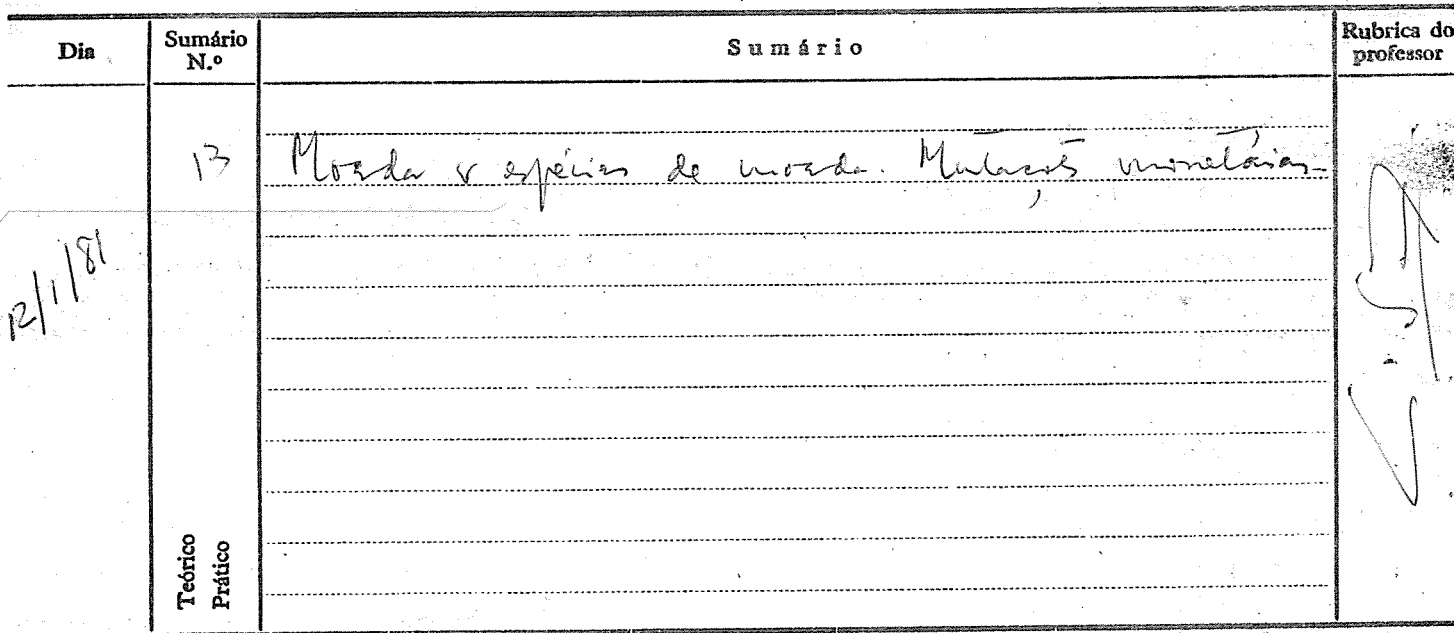 Dia Sumário N.º Sumário Rubrica do professor
13 Moeda e espécies de moeda. Mutações monetárias
12/1/81
Teórico
Prático